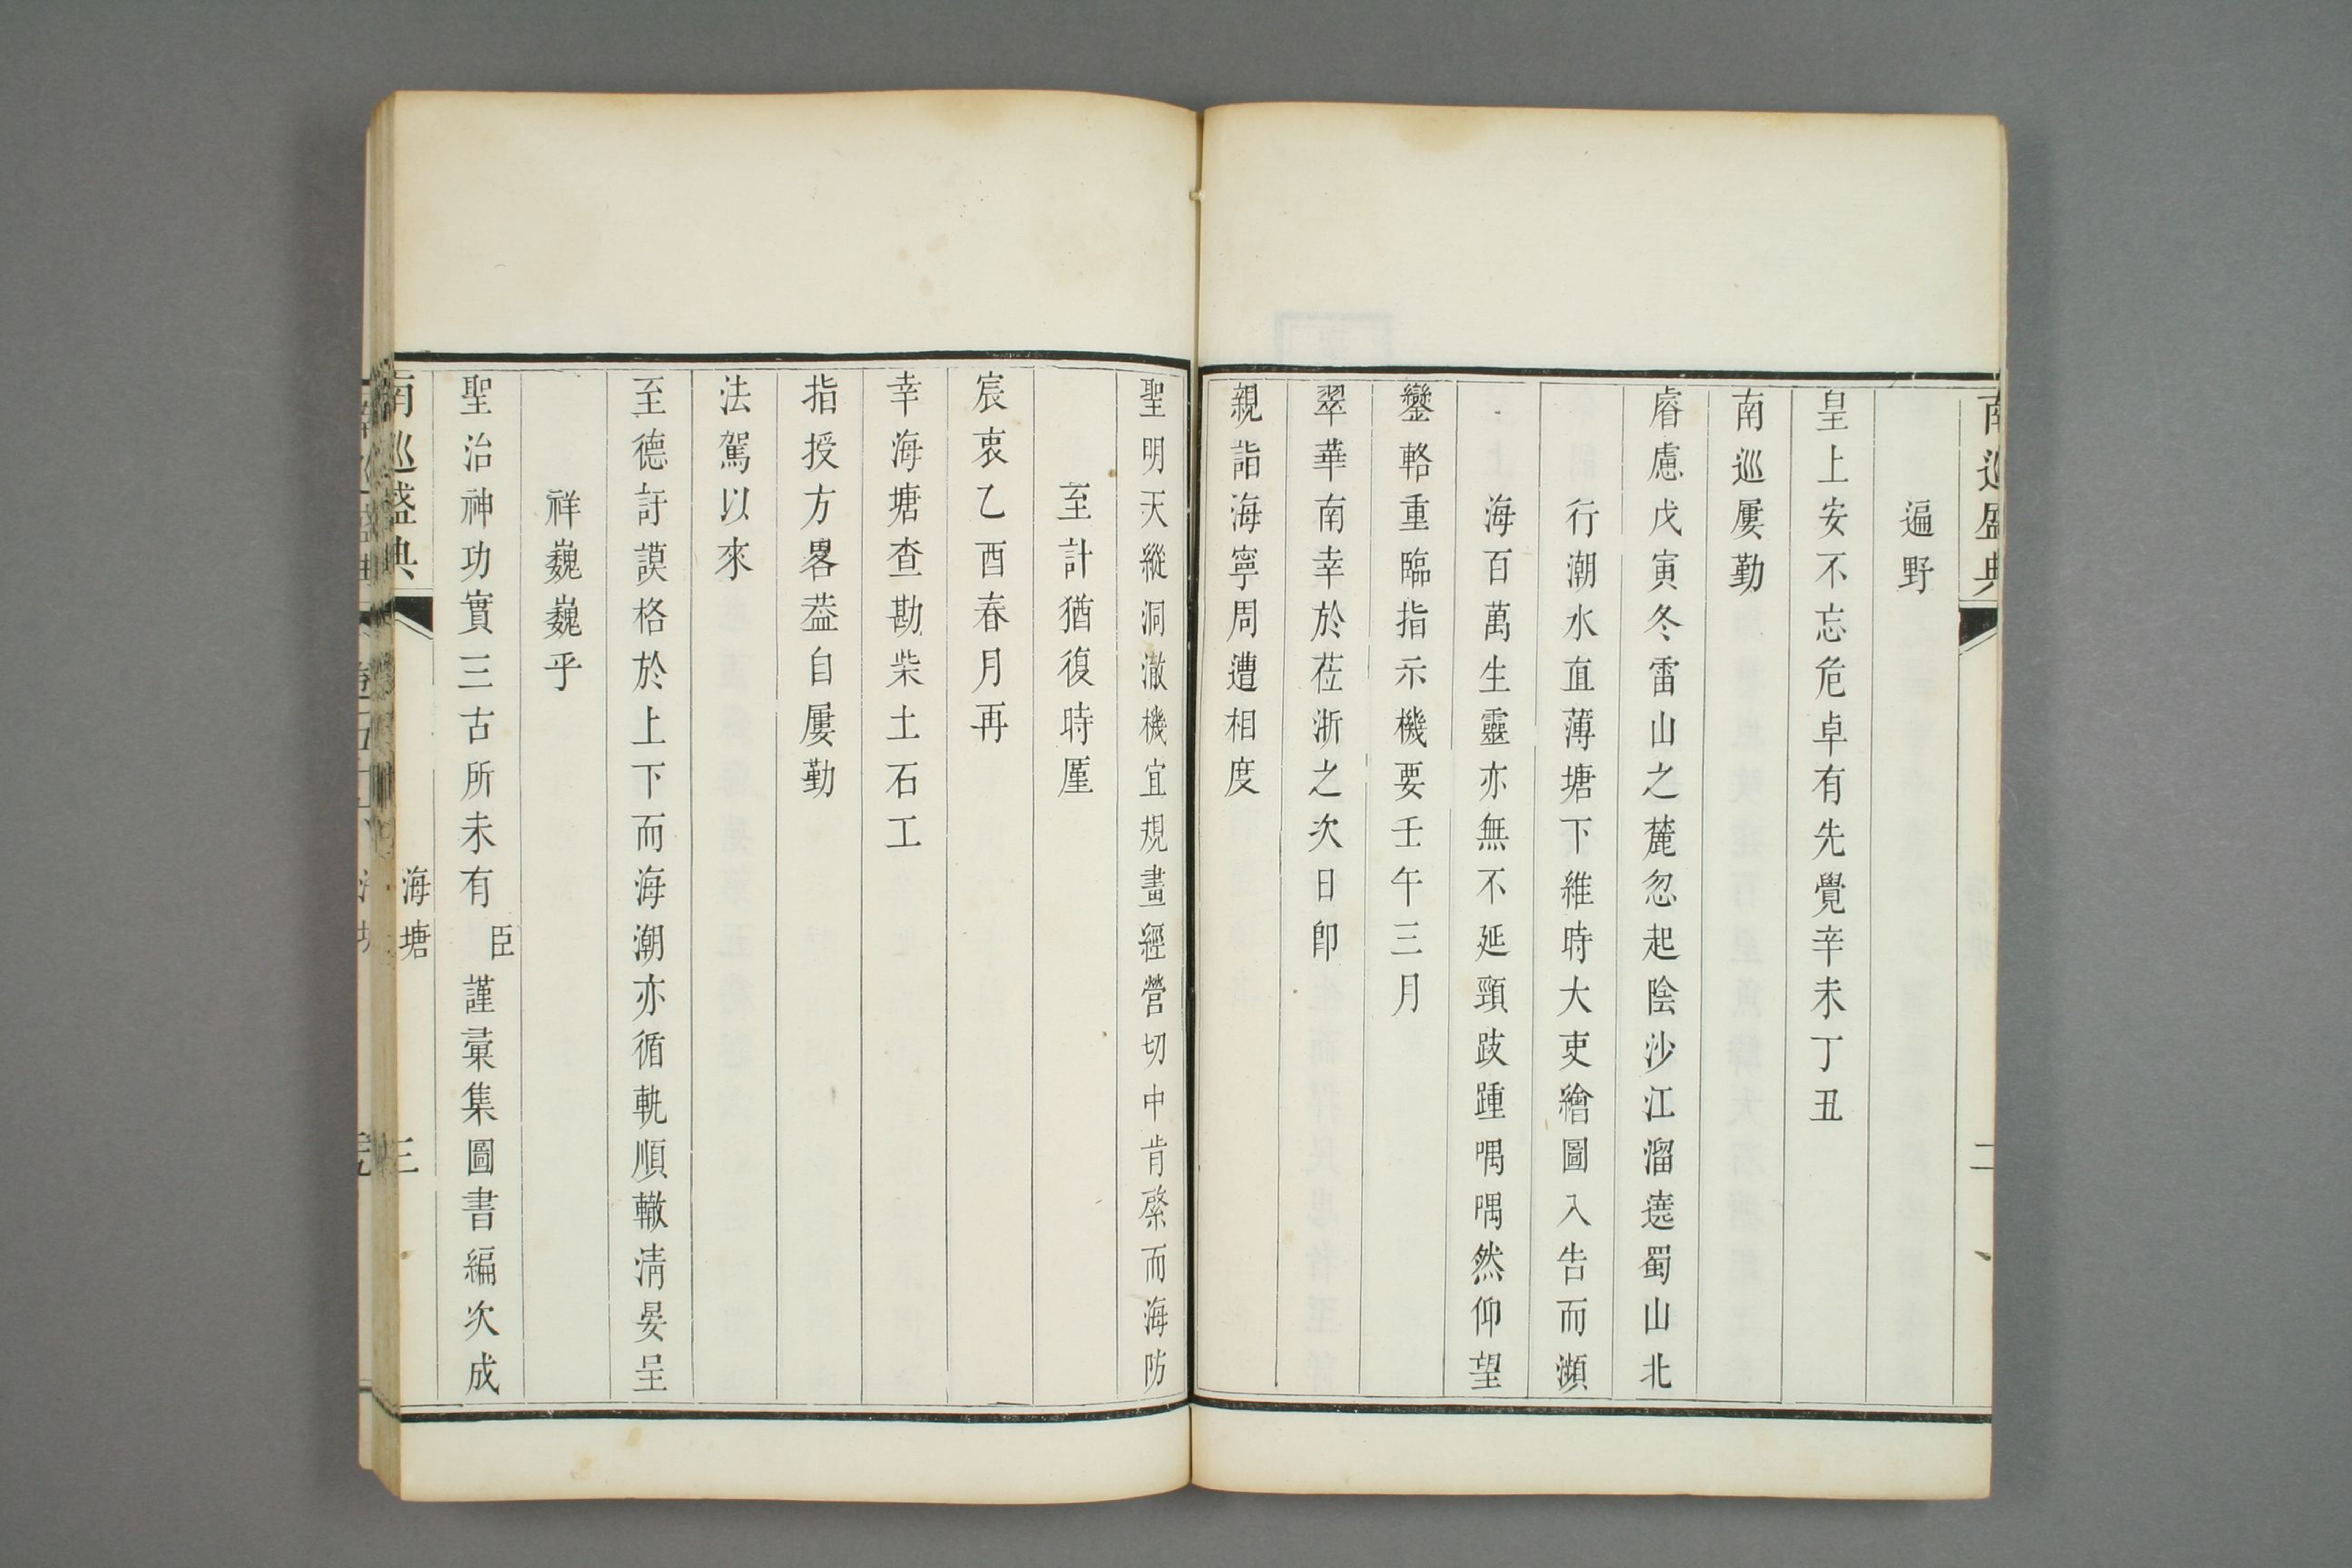 南巡盛典
二
遍野
皇上安不忘危卓有先覺辛未丁丑
南巡屢勤
睿慮戊寅冬雷山之麓忽起陰沙江溜遶蜀山北
行潮水直薄塘下維時大吏繪圖入告而瀕
海百萬生靈亦無不延頸跂踵喁喁然仰望
鑾輅重臨指示機要壬午三月
翠華南幸於莅浙之次日卽
親詣海寧周遭相度
聖明天縱洞澈機宜規畫經營切中肯綮而海防
至計猶復時厪
宸衷乙酉春月再
幸海塘查勘柴土石工
指授方畧葢自屢勤
法駕以來
至德訏謨格於上下而海潮亦循軌順轍清晏呈
祥巍巍乎
聖治神功實三古所未有臣謹彙集圖書編次成
南巡盛典
海塘
三